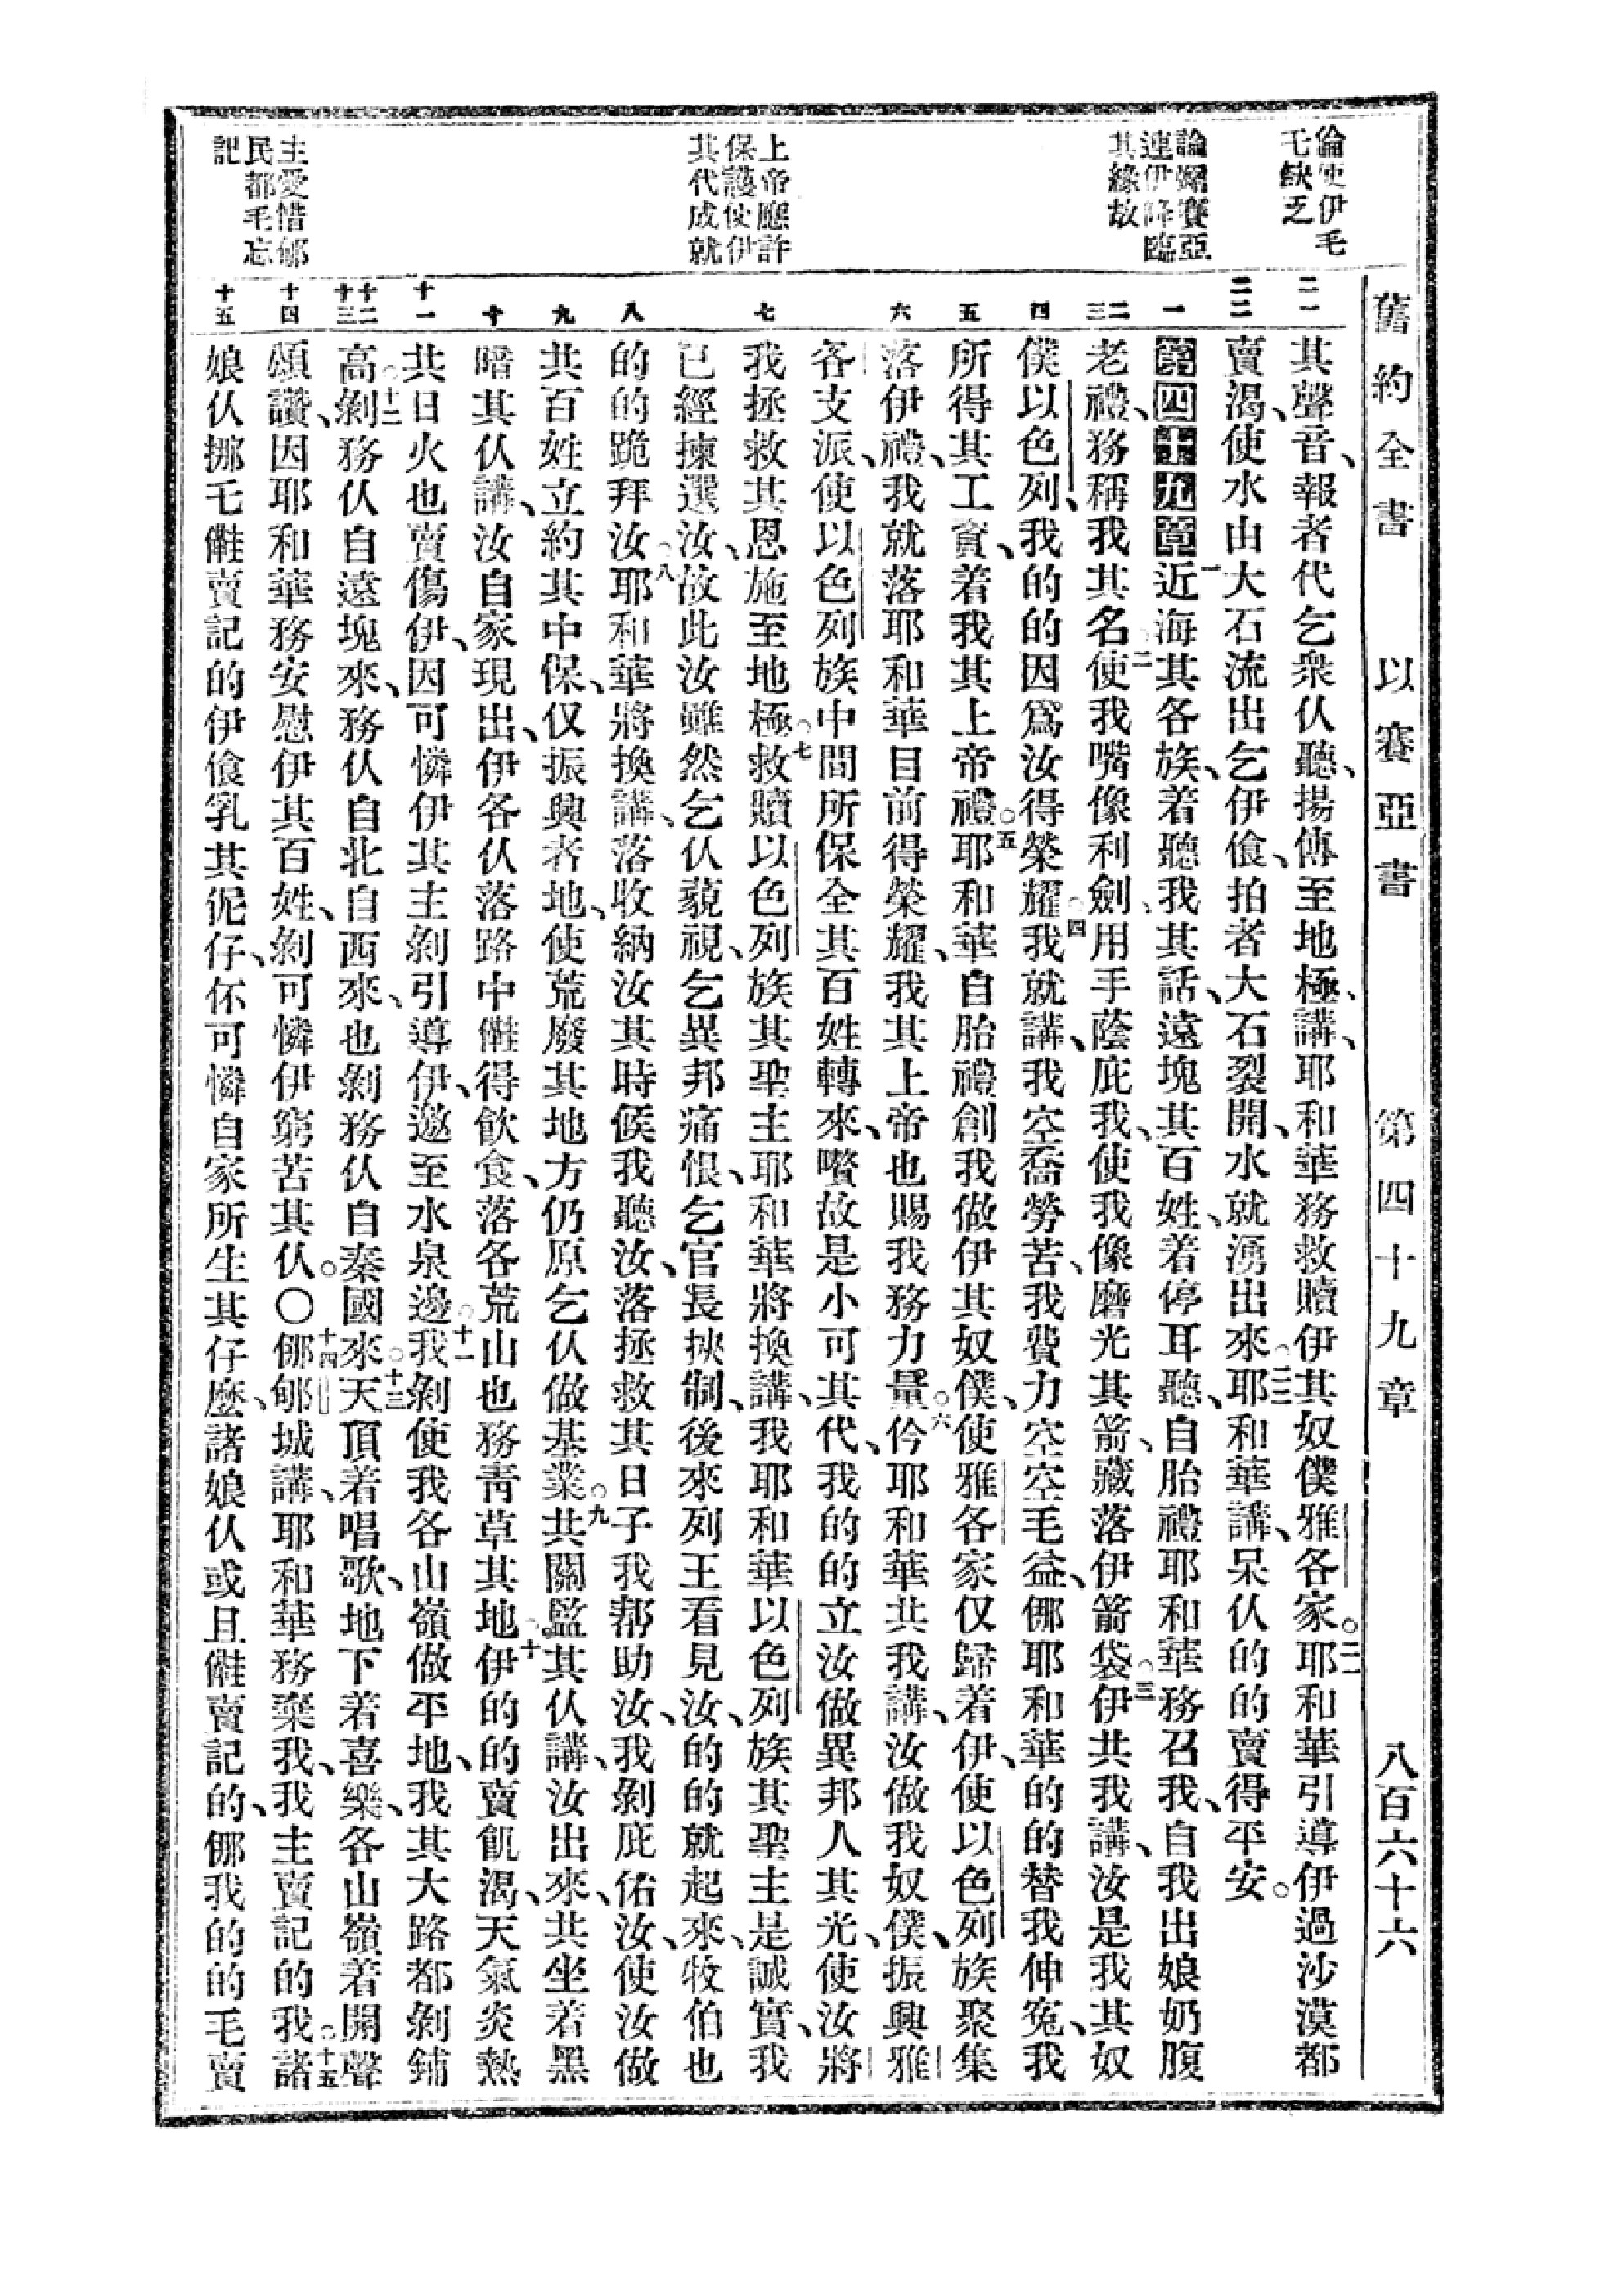 舊約全書 以賽亞書 第四十九章 八百六十六
論使伊毛
乇缺乏
連伊降臨
其緣故
上帝應許
保護使伊
其代成就
主愛惜郇
民都毛忘
記
二一
二二
一
二三
四
五
六
七
八
九
十
十一
十二十三
十四
十五
其聲音、報者代乞衆仈聽、揚傳至地極、講、耶和華務救贖伊其奴僕雅各家。○二一耶和華引導伊過沙漠都
賣渴、使水由大石流出乞伊飡、拍者大石裂開、水就湧出來○二二耶和華講、呆仈的的賣得平安。
第四十九章一近海其各族、着聽我其話、遠塊其百姓、着停耳聽、自胎禮耶和華務召我、自我出娘奶腹
老禮、務稱我其名○二使我嘴像利劍、用手蔭庇我、使我像磨光其箭、藏落伊箭袋○三伊共我講、汝是我其奴
僕以色列、我的的因爲汝得榮耀○四我就講、我空喬勞苦、我費力空空毛益、㑚耶和華的的替我伸寃、我
所得其工𧶽、着我其上帝禮○五耶和華自胎禮創我做伊其奴僕、使雅各家仅歸着伊、使以色列族聚集
落伊禮、我就落耶和華目前得榮耀、我其上帝也賜我務力量○六仱耶和華共我講、汝做我奴僕、振興雅
各支派、使以色列族中間所保全其百姓轉來、嚽故是小可其代、我的的立汝做異邦人其光、使汝將
我拯救其恩施至地極○七救贖以色列族其聖主耶和華將換講、我耶和華以色列族其聖主是誠實、我
已經揀選汝、故此汝雖然乞仈藐視、乞異邦痛恨、乞官長挾制、後來列王看見汝、的的就起來、牧伯也
的的跪拜汝○八耶和華將換講、落收納汝其時候我聽汝、落拯救其日子我幇助汝、我剝庇佑汝、使汝做
共百姓立約其中保、仅振興者地、使荒廢其地方仍原乞仈做基業○九共關監其仈講、汝出來、共坐着黑
暗其仈講、汝自家現出、伊各仈落路中㒰得飲食、落各荒山也務靑草其地○十伊的的賣飢渴、天氣炎熱
共日火也賣傷伊、因可憐伊其主剝引導伊、邀至水泉邊○十一我剝使我各山嶺做平地、我其大路都剝鋪
高○十二剝務仈自遠塊來、務仈自北自西來、也剝務仈自秦國來○十三天頂着唱歌、地下着喜樂、各山嶺着開聲
頌讚、因耶和華務安慰伊其百姓、剝可憐伊窮苦其仈。〇十四㑚郇城講、耶和華務棄我、我主賣記的我○十五諸
娘仈挪乇㒰賣記的伊飡乳其伲仔、伓可憐自家所生其仔麽、諸娘仈或且㒰賣記的、㑚我的的毛賣